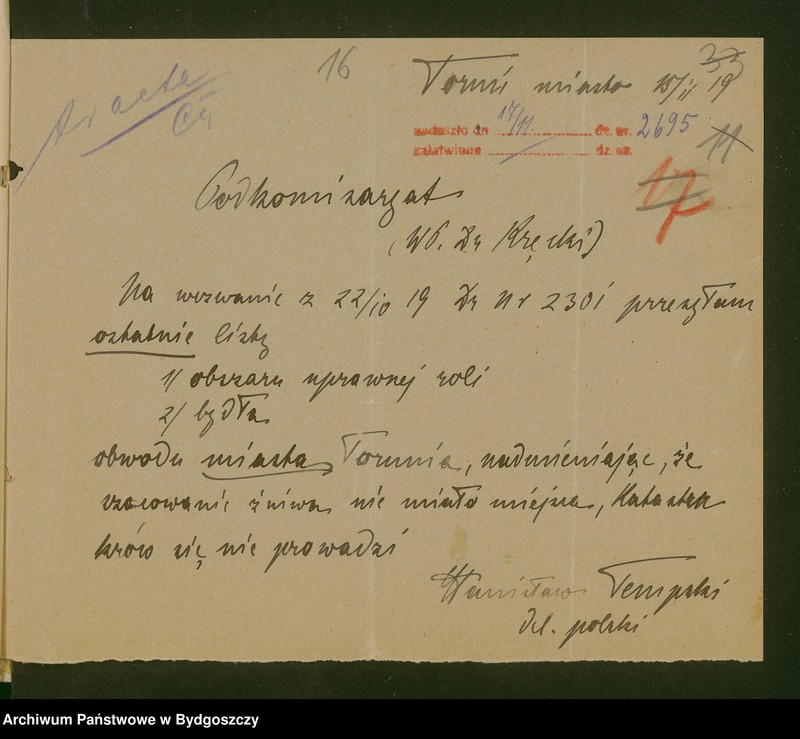 16
33
Toruń miasto 15/11 19
Ad acta
nadeszło dn 17/11 dz. nr. 2695
załatwione dz. nr.
11
17
Podkomisargat
(WP. Dr Kręcki)
Na wezwanie z 22/10 19 Dz Nr 2301 przesyłam
ostatnie listy
1/ obszaru uprawnej roli
2/ bydła
obwodu miasta Torunia, nadmieniając, że
szacowanie żniwa nie miało miejsca, Kataster
krów się nie prowadzi
Stanisław Tempski
del. polski
Archiwum Państwowe w Bydgoszczy